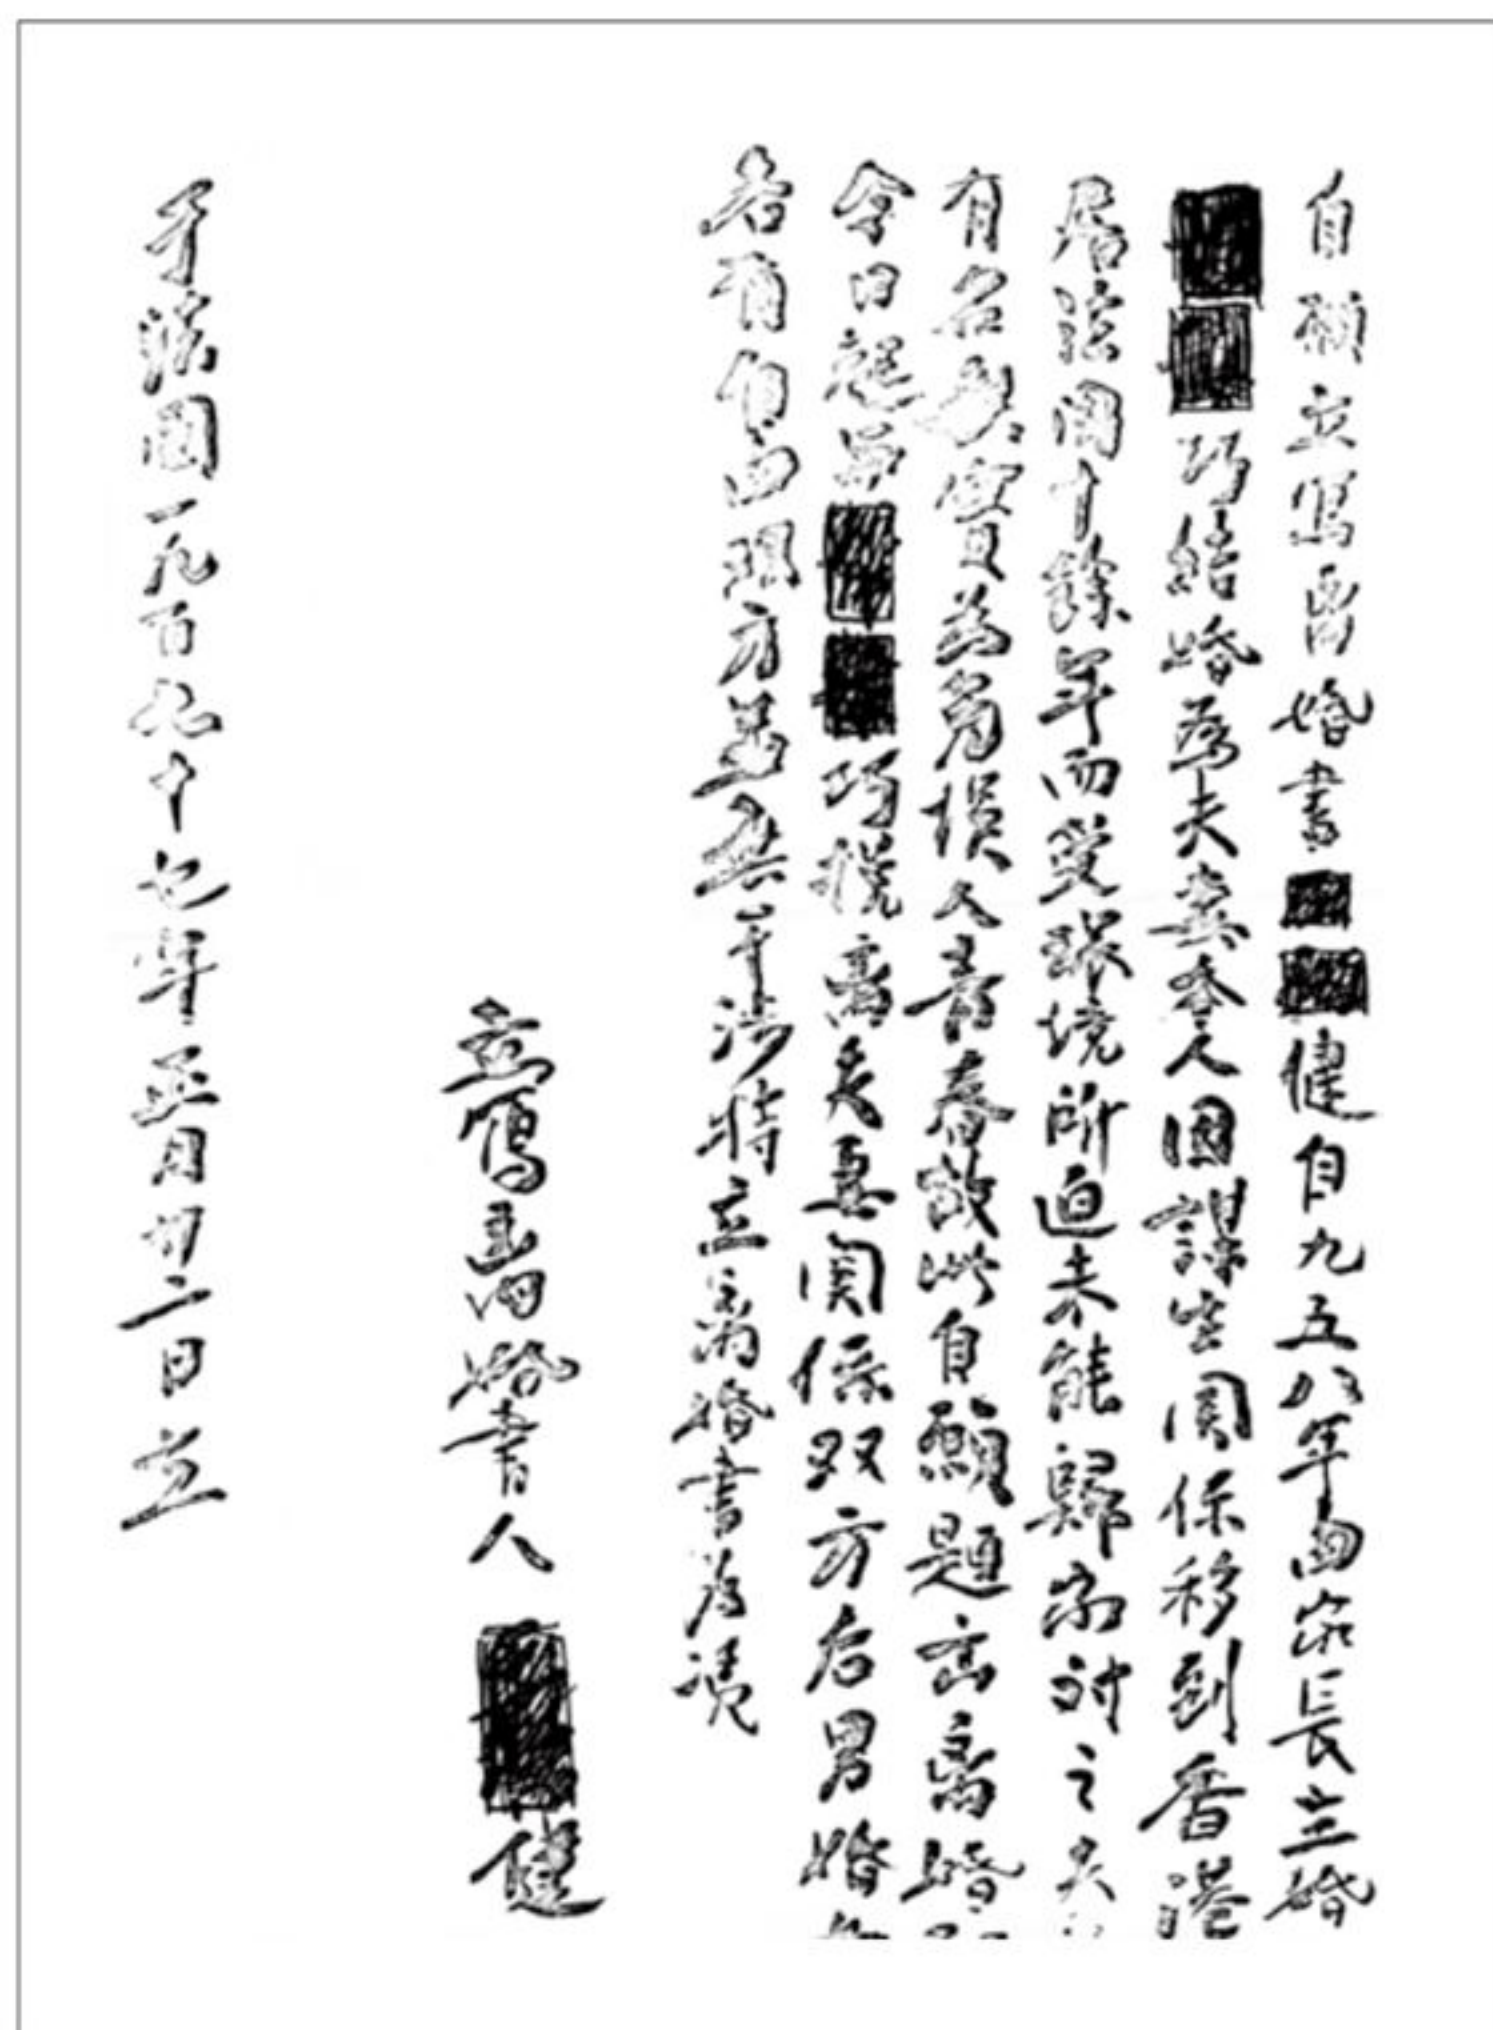 自願立寫离婚書健自九五八年由家長主婚
巧結婚為夫妻吾人因謀生関係移到香港
居法國十餘年而受环境所迫未能歸家对之夫
有名無實為免悞人青春故此自願題出离婚
今日起与巧脱离夫妻関係双方后男婚
若有自由双方無干涉特立离婚書为凭
立寫离婚書人健
于法國一九百九十七年正月初二日立